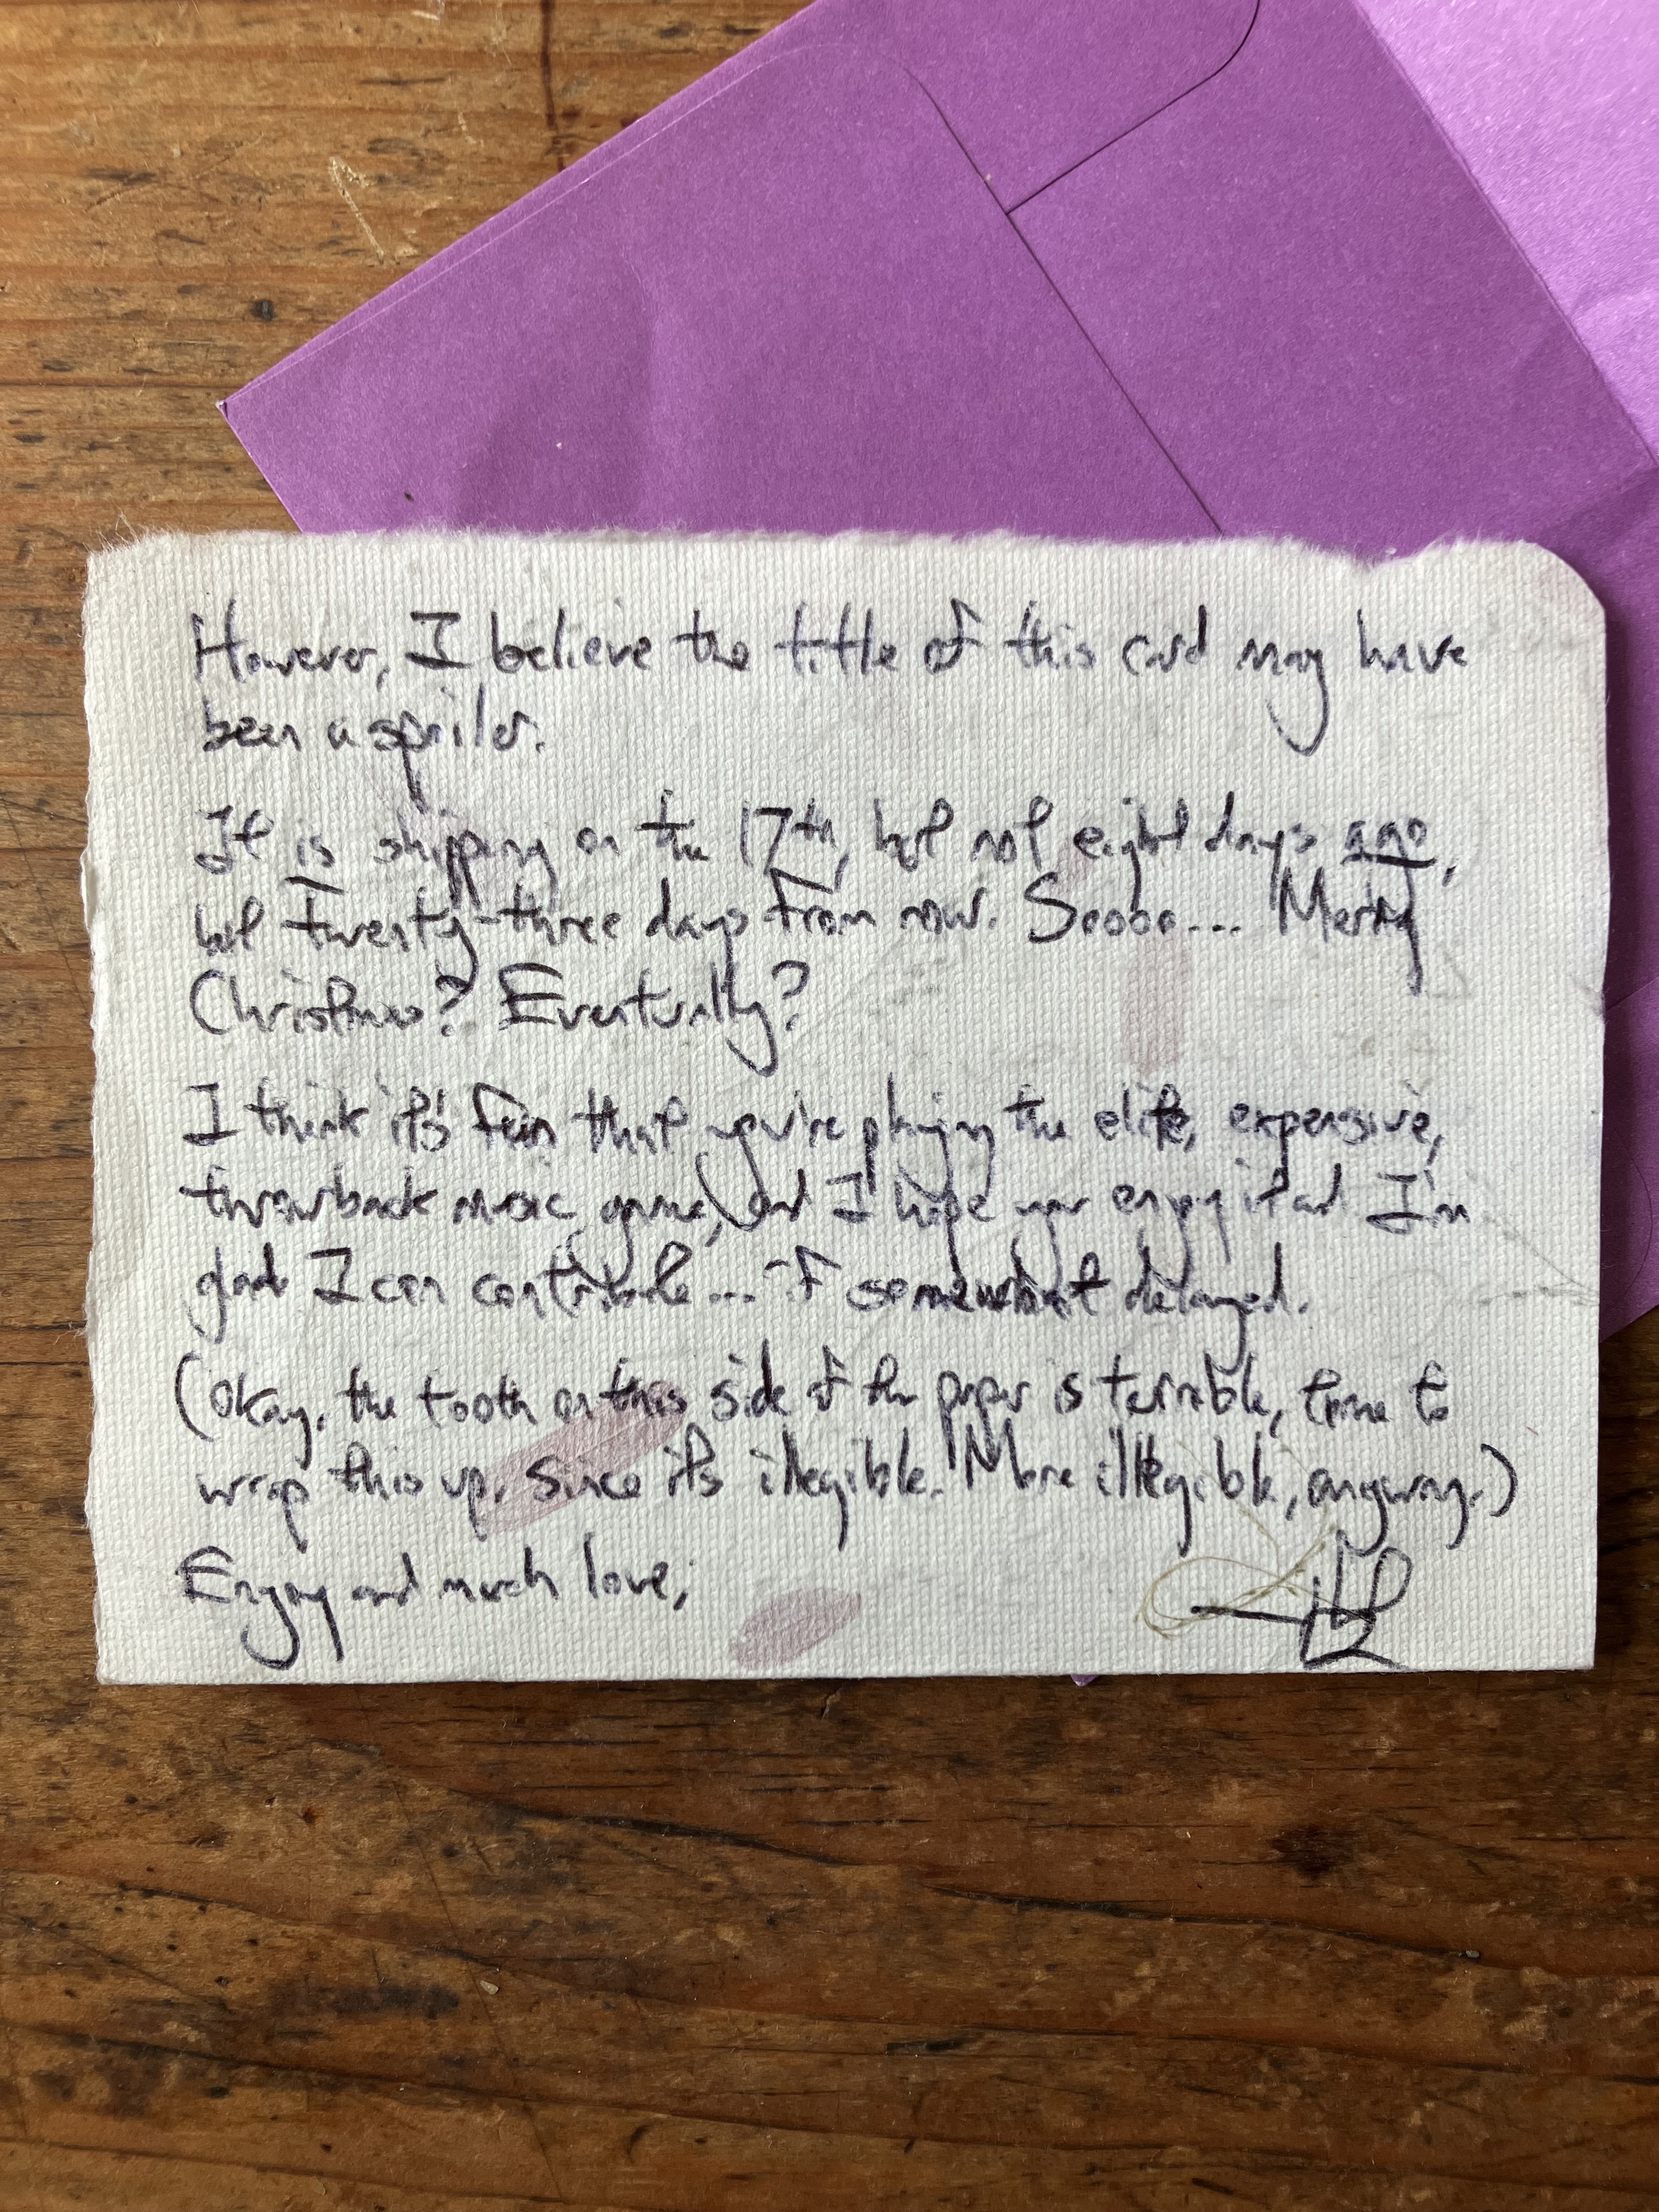 However, I believe the title of this card may have
been a spoiler.
It is shipping on the 17th, but not eight days ago,
but twenty-three days from now. Soooo... Merry
Christmas? Eventually?
I think it's fun that you're playing the elite, expensive,
throwback music game, and I hope you enjoy it and I'm
glad I can contribute... if somewhat delayed.
(Okay, the tooth on this side of the paper is terrible, time to
wrap this up, since it's illegible. More illegible, anyway.)
Enjoy and much love,